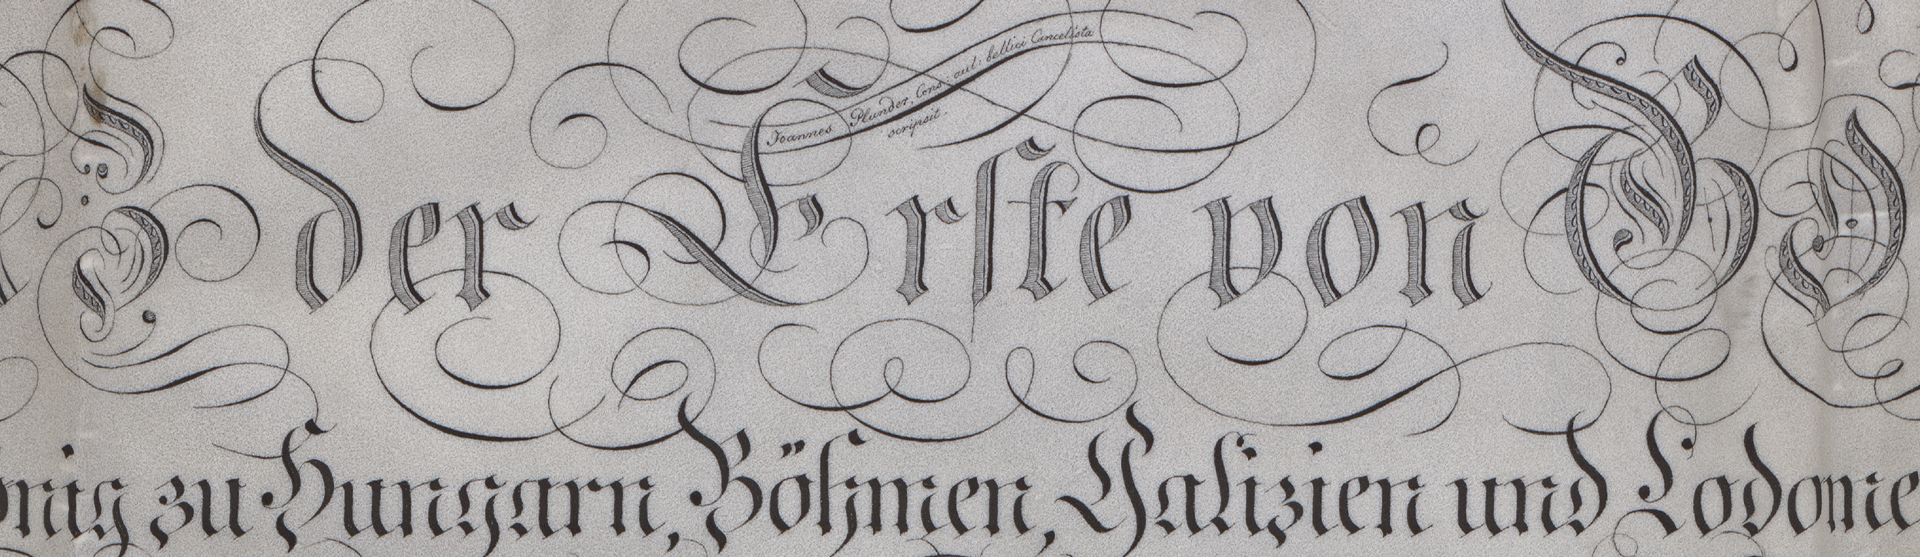 Joannes Plunder, Cons: aul: bellici Cancelista
scripsit.
der Erſte von GO
onig zu Hungarn, Böhmen, Galizien und Lodome